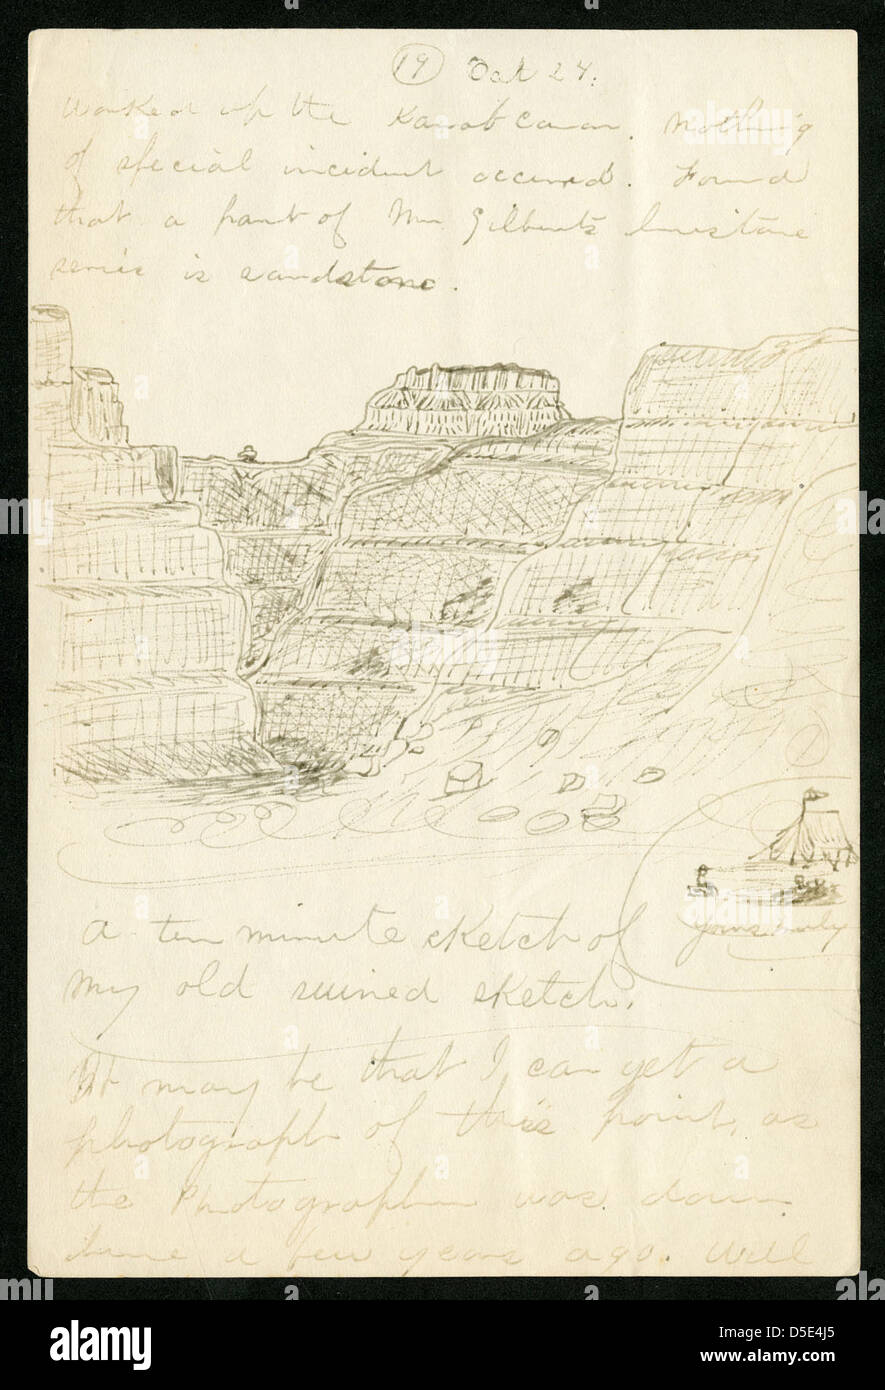 19 Oct 24.
Worked up the Kanab Canon. Nothing
of special incident occured. Found
that a part of Mr Gilberts limestone
series is sandstone.
1
yours truly
a ten minute sketch of
my old ruined sketch.
It may be that I can get a
photograph of this point, as
the Photographer was down
here a few years ago. Will
alamy
Image ID: D5E4J5
www.alamy.com